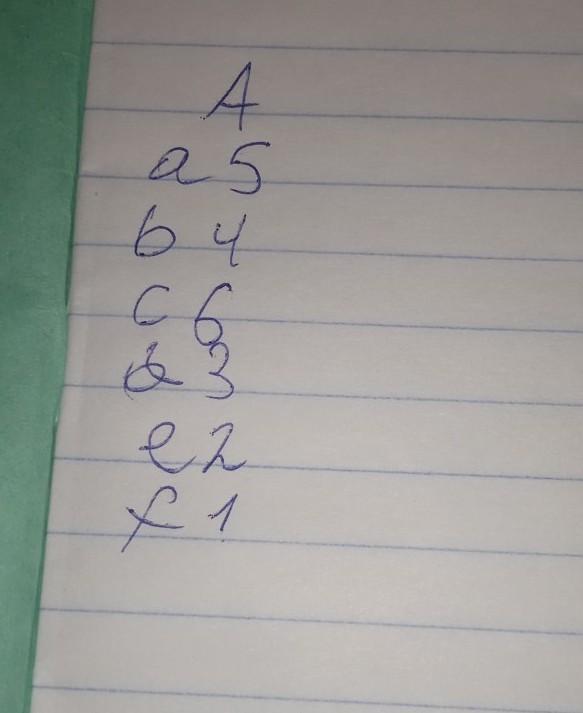 A
a 5
b 4
c 6
d 3
e 2
f 1